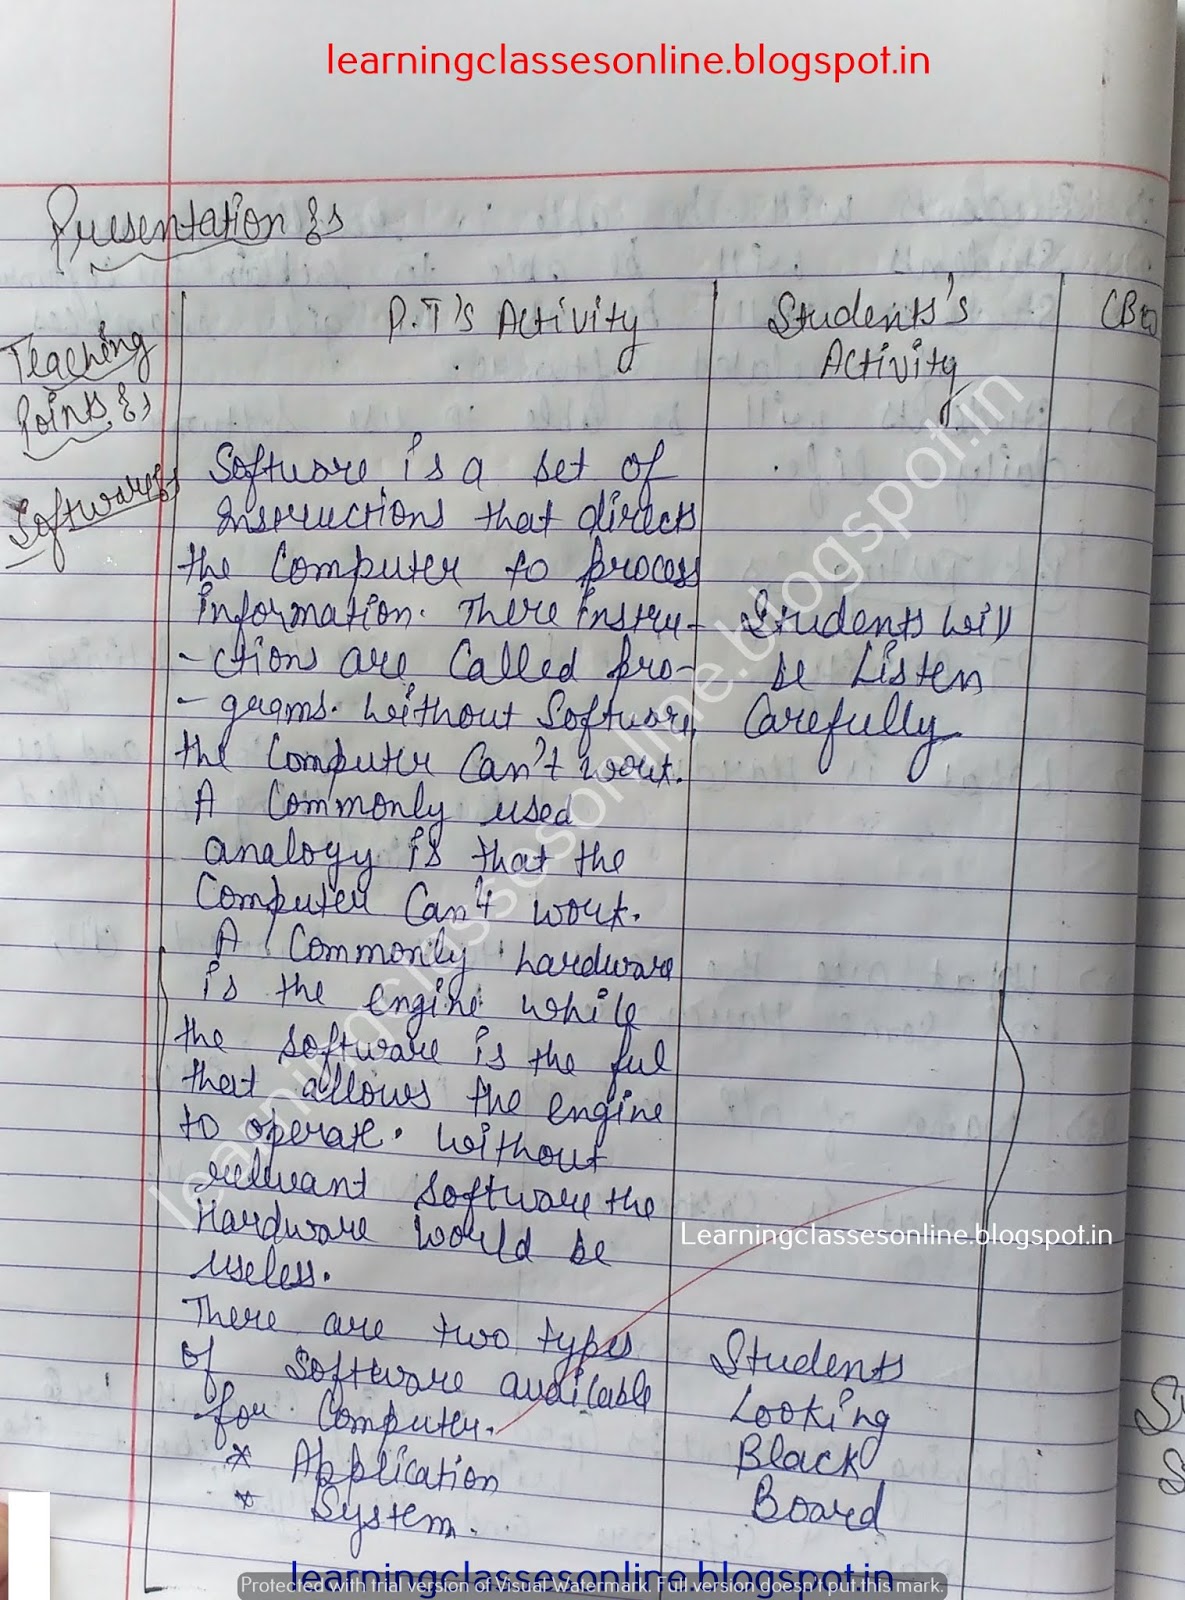 learningclassesonline.blogspot.in
Presentation :-
P.T's Activity
Students's
Activity
CBW
Teaching
Points :-
Software :-
Software is a set of
Instructions that directs
the Computer to process
information. There instru-
-ctions are Called pro-
-grams. Without Software
the Computer Can't work.
A Commonly used
analogy is that the
Computer Can't work.
A Commonly hardware
is the engine while
the software is the ful
that allows the engine
to operate. Without
rellvant software the
Hardware Would be
useless.
There are two types
of Software available
for Computer.
* Application
* System.
Students will
be Listen
Carefully
Students
Looking
Black
Board
learningclassesonline.blogspot.in
Learningclassesonline.blogspot.in
learningclassesonline.blogspot.in
Protected with trial version of Visual Watermark. Full version doesn't put this mark.